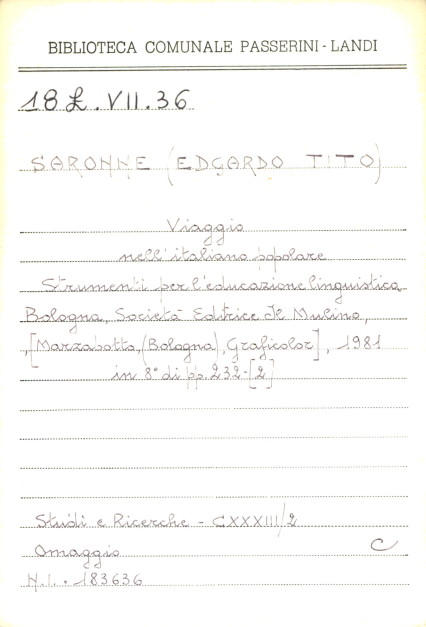 BIBLIOTECA COMUNALE PASSERINI - LANDI
18 L. VII. 36
SARONNE (EDGARDO TITO)
Viaggio
nell'italiano popolare
Strumenti per l'educazione linguistica
Bologna, Società Editrice Il Mulino,
, [Marzabotto, (Bologna), Graficolor], 1981
in 8° di pp. 232-[2]
Studi e Ricerche - CXXXIII/2
Omaggio C
N.I. 183636